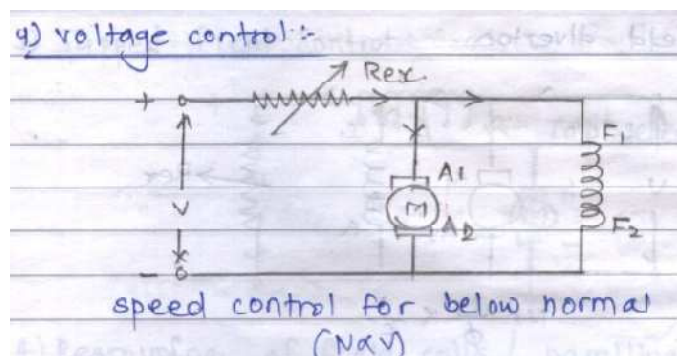 4) voltage control :-
Rex.
+
F1
A1
V
M
A2
F2
-
speed control for below normal
(N∝V)